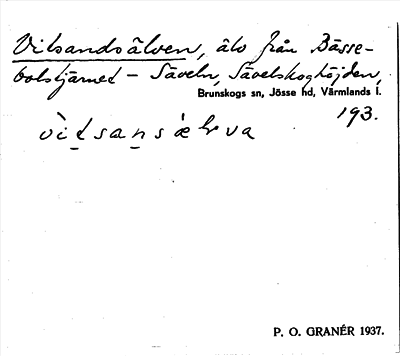 Vitsandsälven, älv från Bässe-
bolstjärnet - Säveln, Sävelskoghöjden,
Brunskogs sn, Jösse hd, Värmlands l.
193.
P. O. GRANÉR 1937.